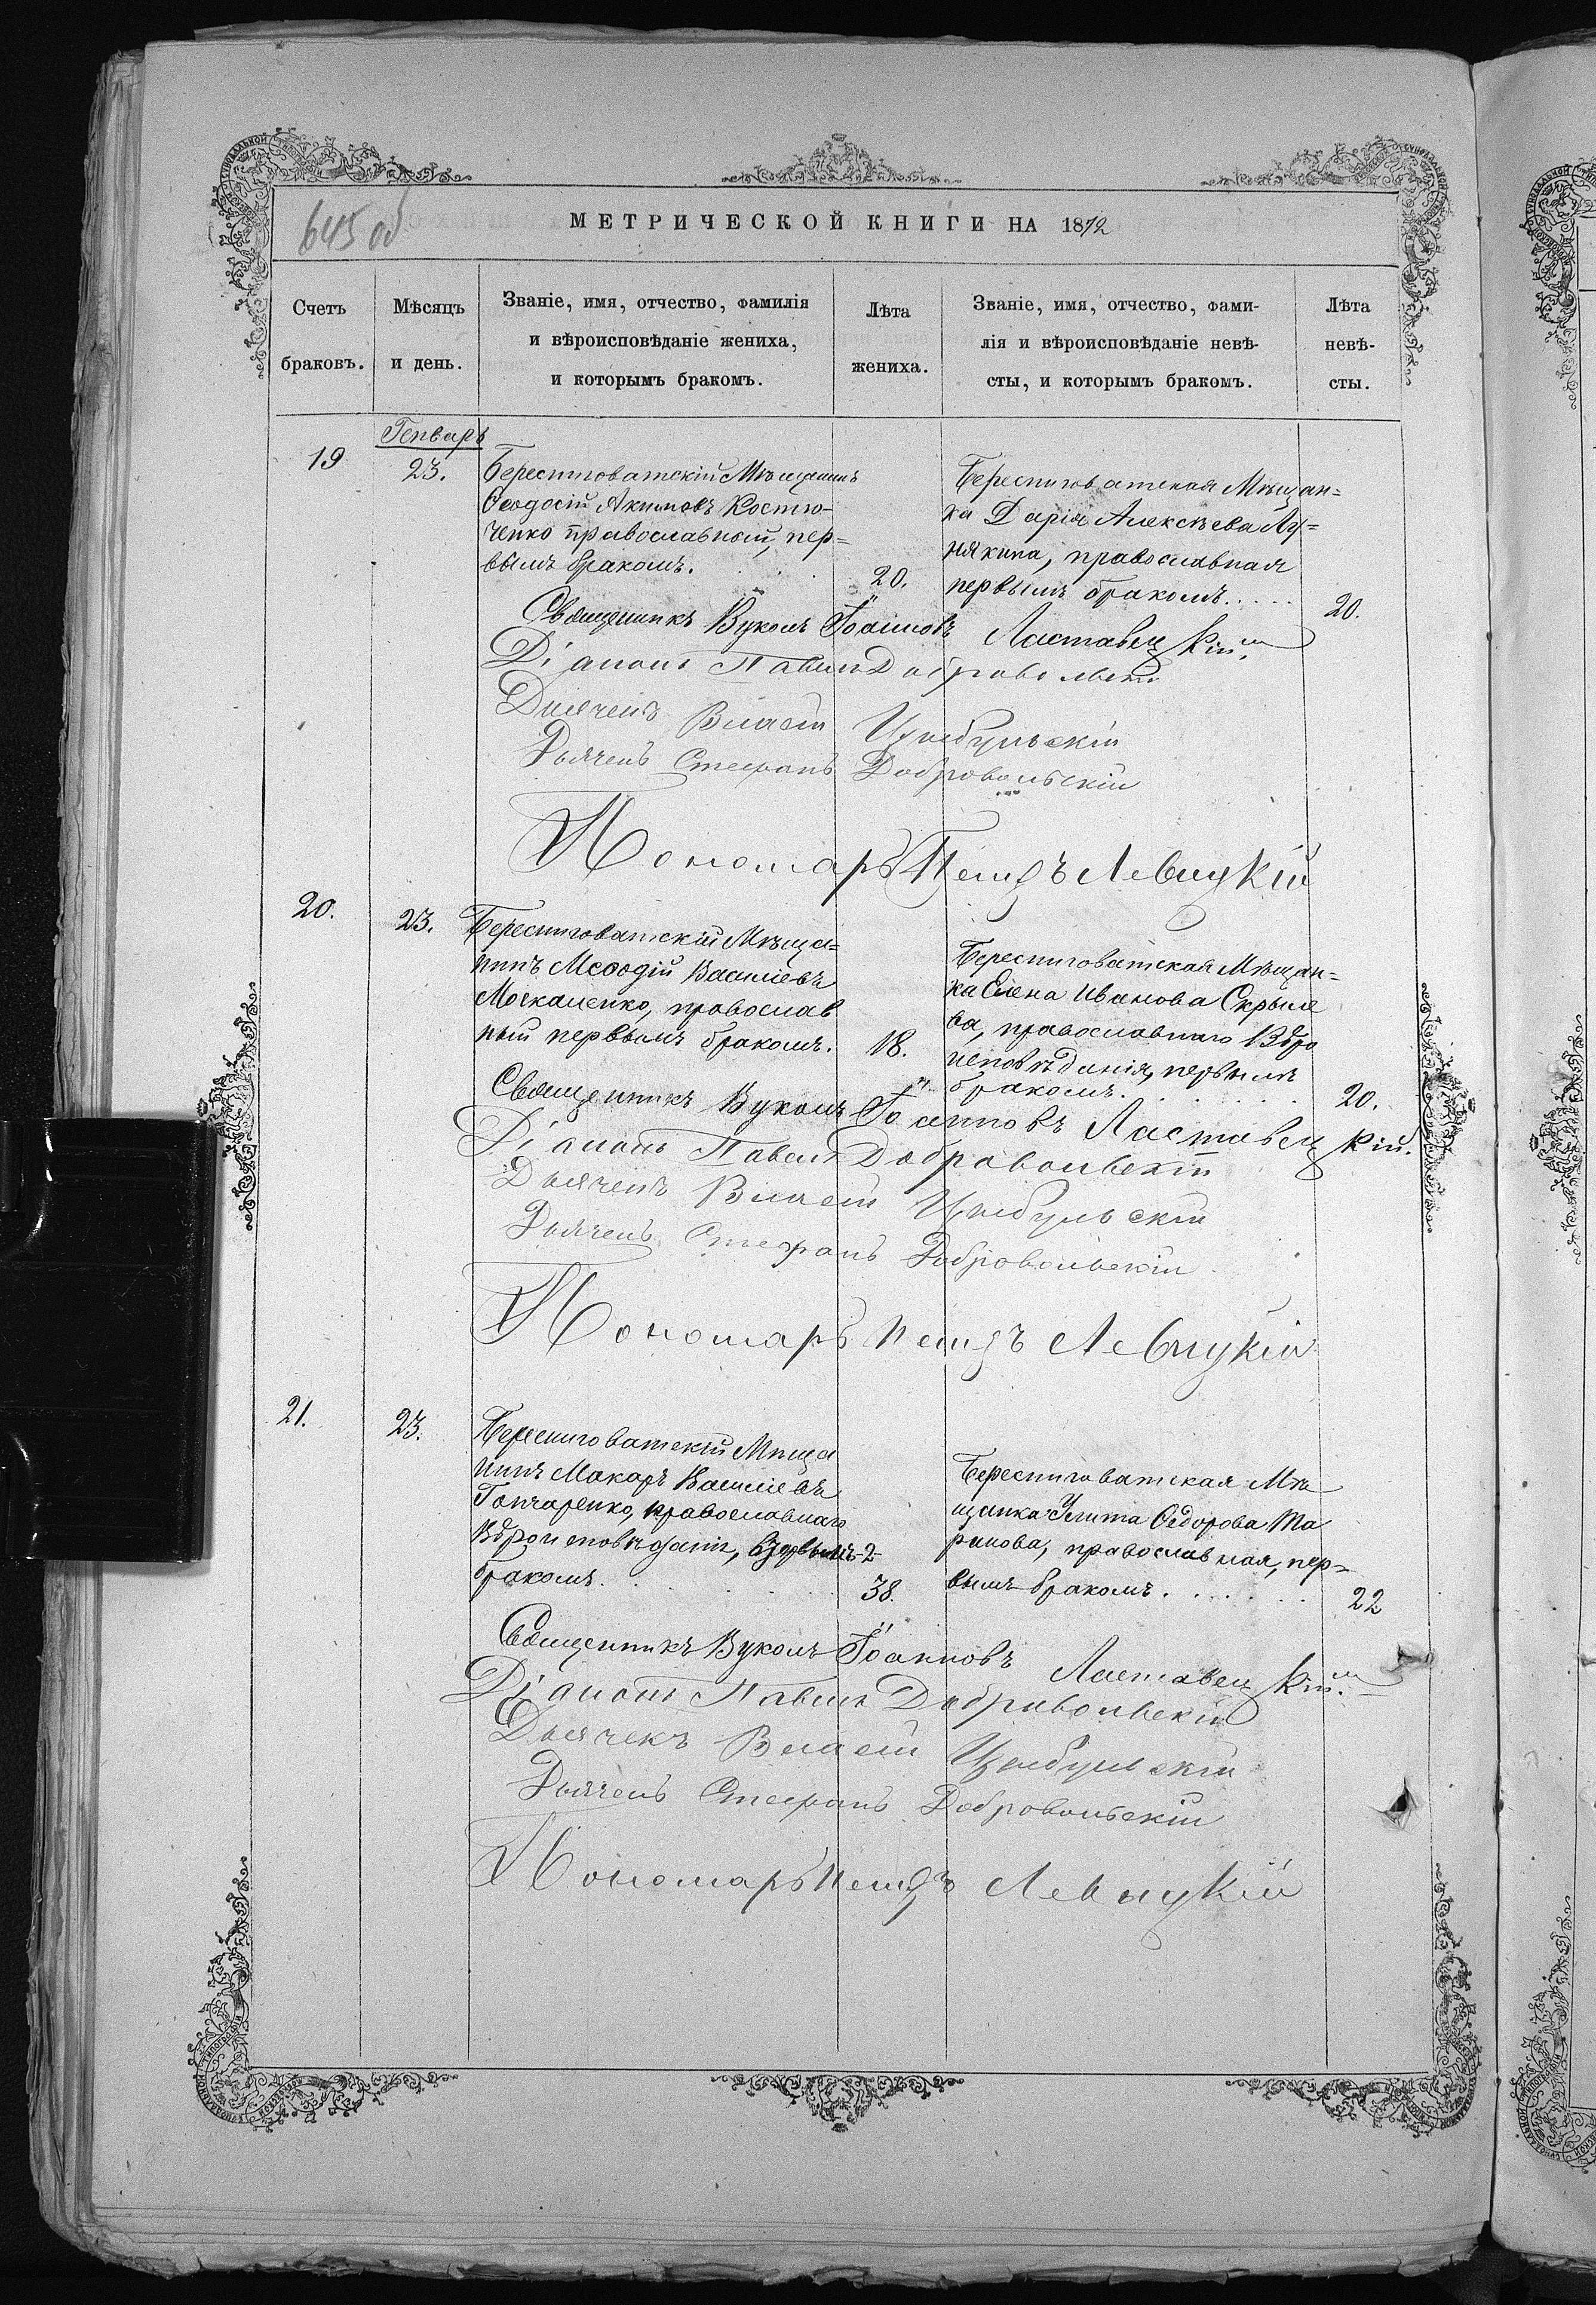 645 об
МЕТРИЧЕСКОЙ КНИГИ НА 1872
Счетъ браковъ.
Мѣсяцъ и день.
Званіе, имя, отчество, фамилія
и вѣроисповѣданіе жениха,
и которымъ бракомъ.
Лѣта жениха.
Званіе, имя, отчество, фами-
лія и вѣроисповѣданіе невѣ-
сты, и которымъ бракомъ.
Лѣта невѣ-
сты.
Генварь
19
23.
Берестоватскій Мѣщанинъ
Ѳеодосій Акимовъ Костю-
ченко православный, пер=
вымъ бракомъ.
20.
Берестоватская Мѣщан=
ка Дарія Алексѣева Лу=
някина, православная
первымъ бракомъ.....
20.
Священникъ Вуколъ Іоанновъ Ластавецкій
Діаконъ Павелъ Добровольскі
Дьячекъ Власій Цымбульскій
Дьячекъ Стефанъ Добровольскій
Пономарь Петръ Левицкій
20.
23.
Берестоватскій Мѣща=
нинъ Меѳодій Василіевъ
Москаленко, православ
ный первымъ бракомъ.
18.
Берестоватская Мѣщан=
ка Елена Иванова Скрыле
ва, православнаго Вѣро
исповѣданія, первымъ
бракомъ.
20.
Священникъ Вуколъ Іоанновъ Ластавецкій.
Діаконъ Павелъ Добровольскій
Дьячекъ Власій Цымбульскій
Дьячекъ Стефанъ Добровольскій
Пономарь Петръ Левицкій
21.
23.
Берестоватскій Мѣща
нинъ Макаръ Василіевъ
Гончаренко, православнаго
Вѣроисповѣданія, -2-
бракомъ.
38.
Берестоватская Мѣ
щанка Улита Ѳедорова Ма
ринова, православная, пер=
вымъ бракомъ......
22
Священникъ Вуколъ Іоанновъ Ластавецкій.
Діаконъ Павелъ Добровольскій
Дьячекъ Власій Цымбульскій
Дьячекъ Стефанъ Добровольскій
Пономарь Петръ Левицкій